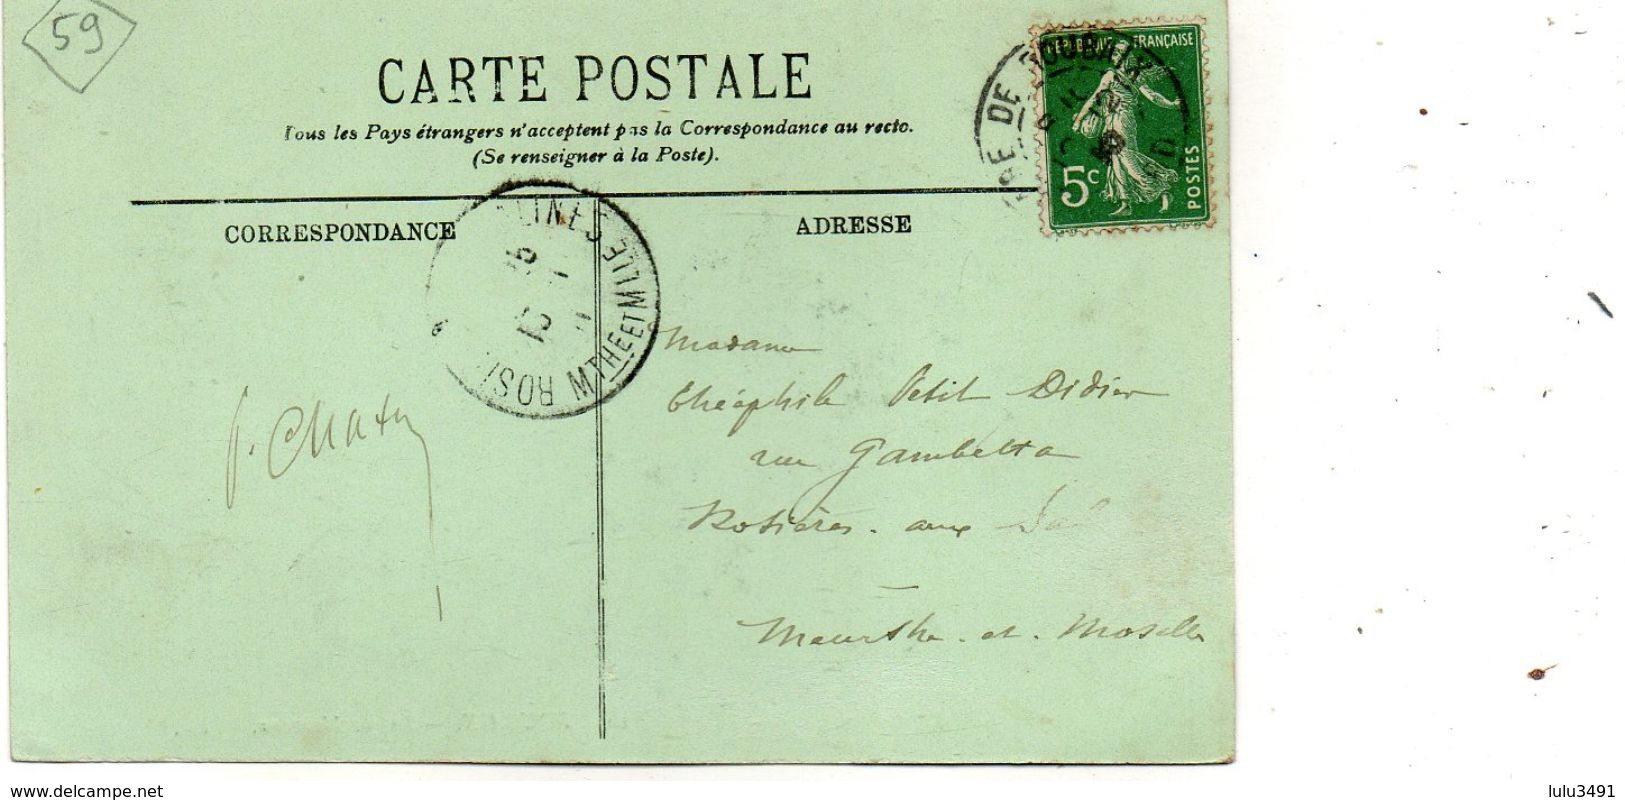 59
CARTE POSTALE
Tous les Pays étrangers n'acceptent pas la Correspondance au recto.
(Se renseigner à la Poste).
CORRESPONDANCE
ADRESSE
DE ROUBAIX
FRANÇAISE
5c
POSTES
MTHE ET MLLE
Madame
Théophile Petit Didier
rue Gambetta
Rosières-aux
Meurthe-et-Moselle
www.delcampe.net
lulu3491